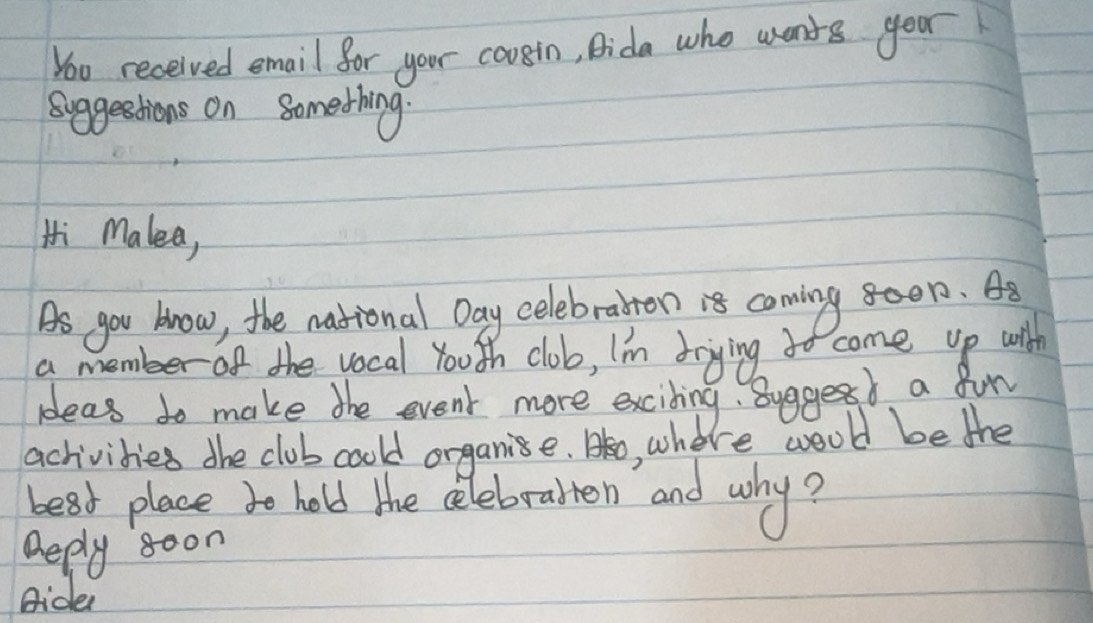 You received email for your cousin, Aida who wants your
suggestions on something.
Hi Malea,
As you know, the national Day celebration is coming soon. As
a member of the vocal Youth club, I'm trying to come up with
ideas to make the event more exciting. Suggest a fun
activities the club could organise. Also, where would be the
best place to hold the celebration and why?
Reply soon
Aida